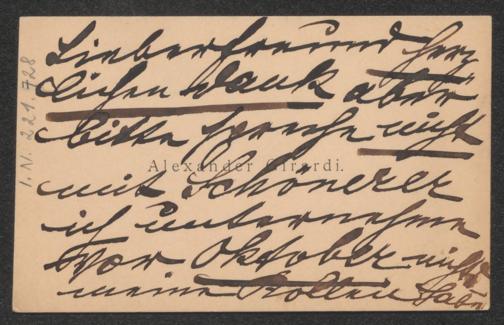 Lieber Freund herz
lichen Dank aber
bitte spreche nicht
Alexander Girardi.
mit Schönerer
ich unternehme
vor Oktober nichts
meine Rollen
I.N. 221.728